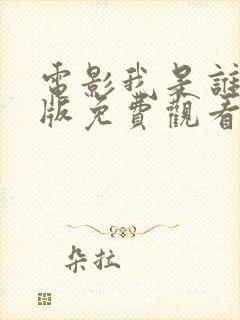 電影我是誰
版免費觀看
朵拉